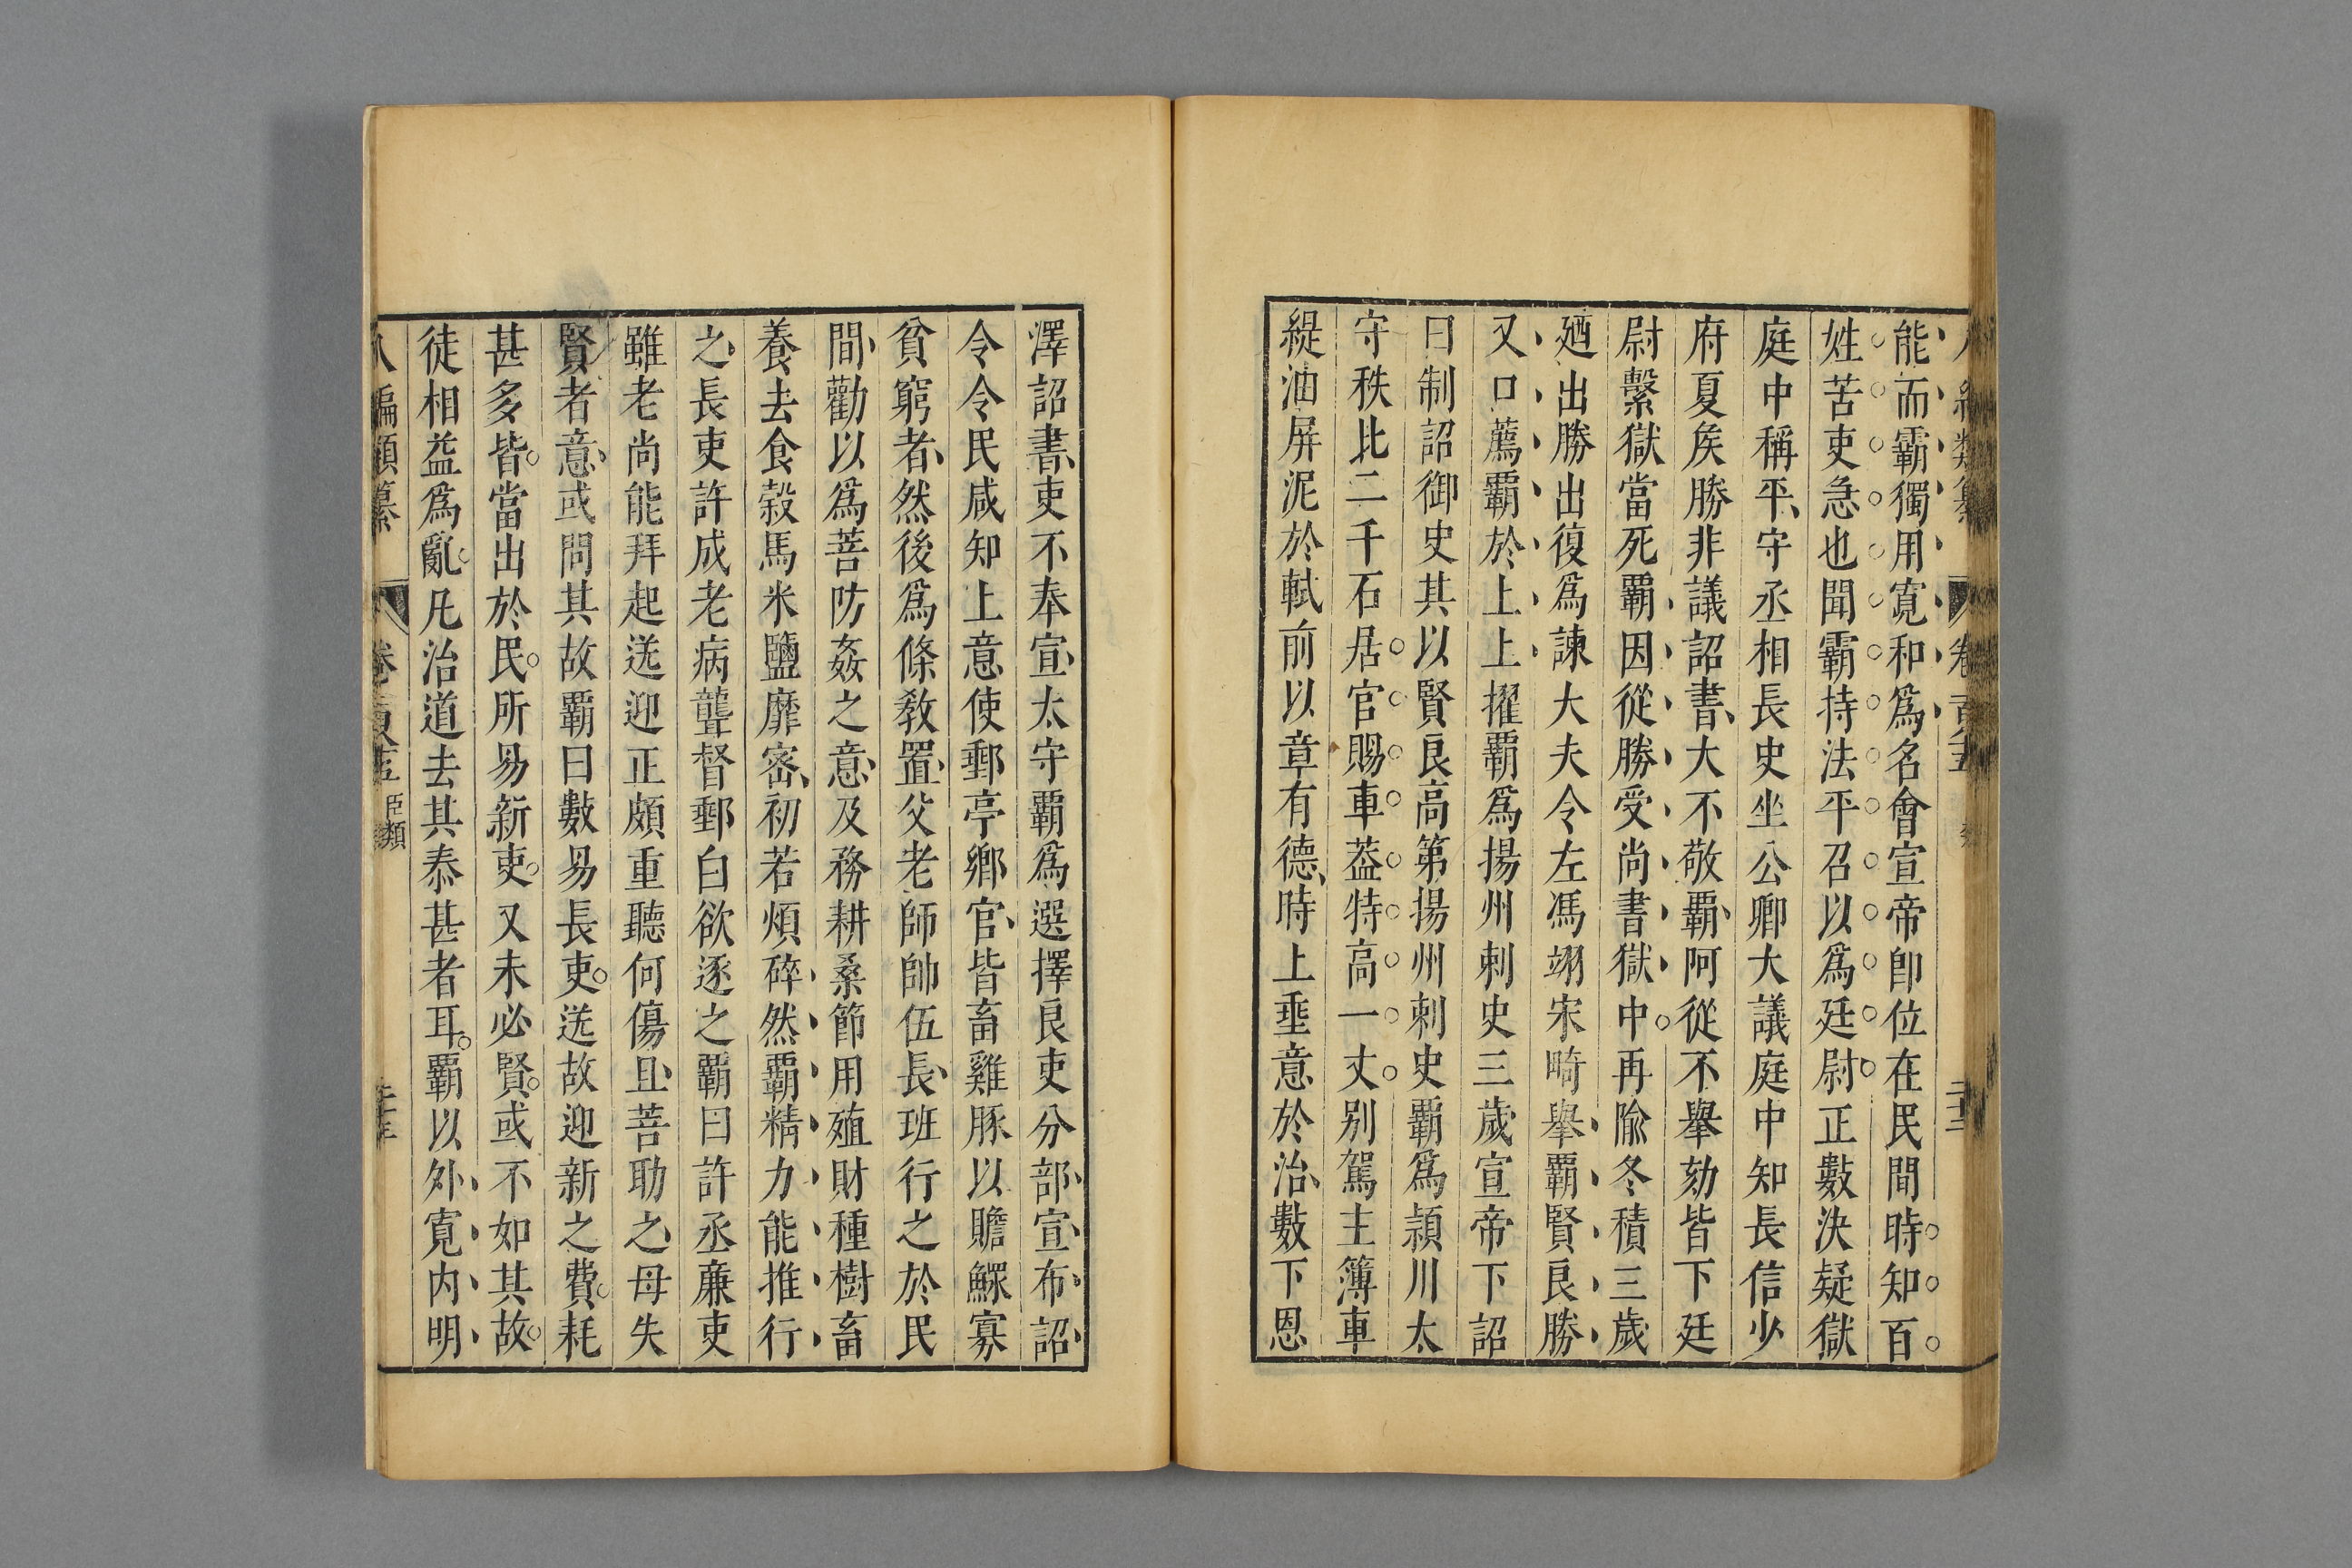 能而霸獨用寬和爲名會宣帝卽位在民間時知百
姓苦吏急也聞霸持法平召以爲廷尉正數決疑獄
庭中稱平守丞相長史坐公卿大議庭中知長信少
府夏矦勝非議詔書大不敬霸阿從不舉劾皆下廷
尉繫獄當死霸因從勝受尚書獄中再隃冬積三歲
廼出勝出復爲諫大夫令左馮翊宋畸舉霸賢良勝
又口薦霸於上上擢霸爲揚州刺史三歲宣帝下詔
曰制詔御史其以賢良高第揚州刺史霸爲潁川太
守秩比二千石居官賜車葢特高一丈别駕主簿車
緹油屏泥於軾前以章有德時上垂意於治數下恩
澤詔書吏不奉宣太守霸爲選擇良吏分部宣布詔
令令民咸知上意使郵亭鄉官皆畜雞豚以贍鰥寡
貧窮者然後爲條敎置父老師帥伍長班行之於民
間勸以爲善防姦之意及務耕桑節用殖財種樹畜
養去食榖馬米鹽靡密初若煩碎然霸精力能推行
之長吏許成老病聾督郵白欲逐之霸曰許丞廉吏
雖老尚能拜起送迎正頗重聽何傷且善助之母失
賢者意或問其故霸曰數易長吏送故迎新之費耗
甚多皆當出於民所易新吏又未必賢或不如其故
徒相益爲亂凡治道去其泰甚者耳霸以外寬内明
八編類纂 卷一百八十五 臣類